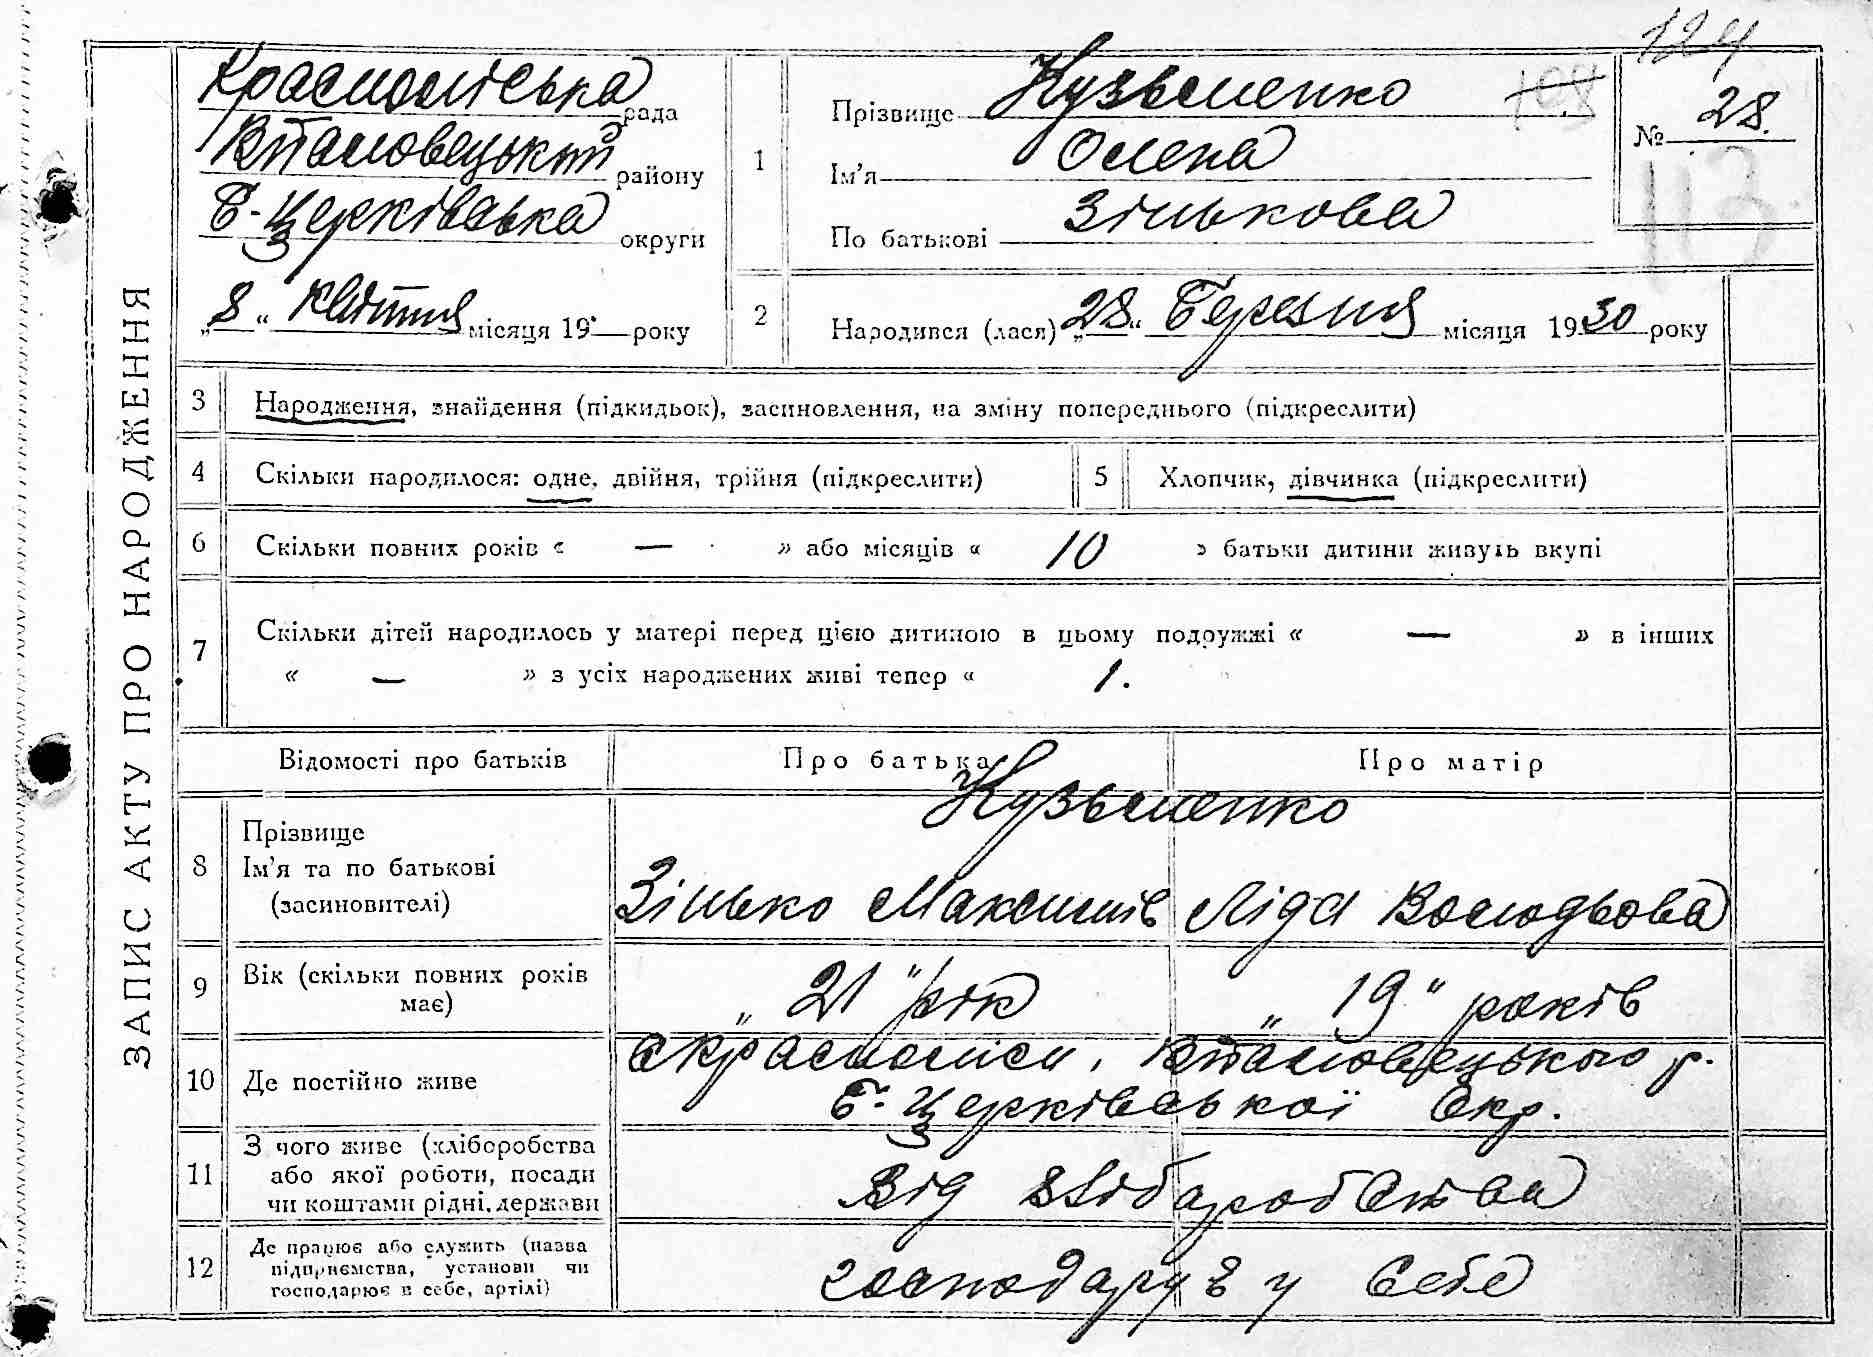 124
ЗАПИС АКТУ ПРО НАРОДЖЕННЯ
Красноліська рада
району
Б-Церківська округи
„8“ квітня місяця 19 року
1
Прізвище Кузьменко
Ім’я Олена
По батькові Зінькова
108
№ 28.
113
2
Народився (лася) „28“ Березня місяця 1930 року
3
Народження, знайдення (підкидьок), засиновлення, на зміну попереднього (підкреслити)
4
Скільки народилося: одне, двійня, трійня (підкреслити)
5
Хлопчик, дівчинка (підкреслити)
6
Скільки повних років « — » або місяців « 10 » батьки дитини живуть вкупі
7
Скільки дітей народилось у матері перед цією дитиною в цьому подружжі « — » в інших
« — » з усіх народжених живі тепер « 1.
Відомості про батьків
Про батька
Про матір
8
Прізвище
Ім’я та по батькові
(засиновителі)
Кузьменко
Зінько Максимів
Ліда Володьова
9
Вік (скільки повних років
має)
„21“ рік
„19“ років
10
Де постійно живе
р.
Б-Церківської Окр.
11
З чого живе (хліборобства
або якої роботи, посади
чи коштами рідні, держави
Від хлібаробства
12
Де працює або служить (назва
підприємства, установи чи
господарює в себе, артілі)
господарує у себе